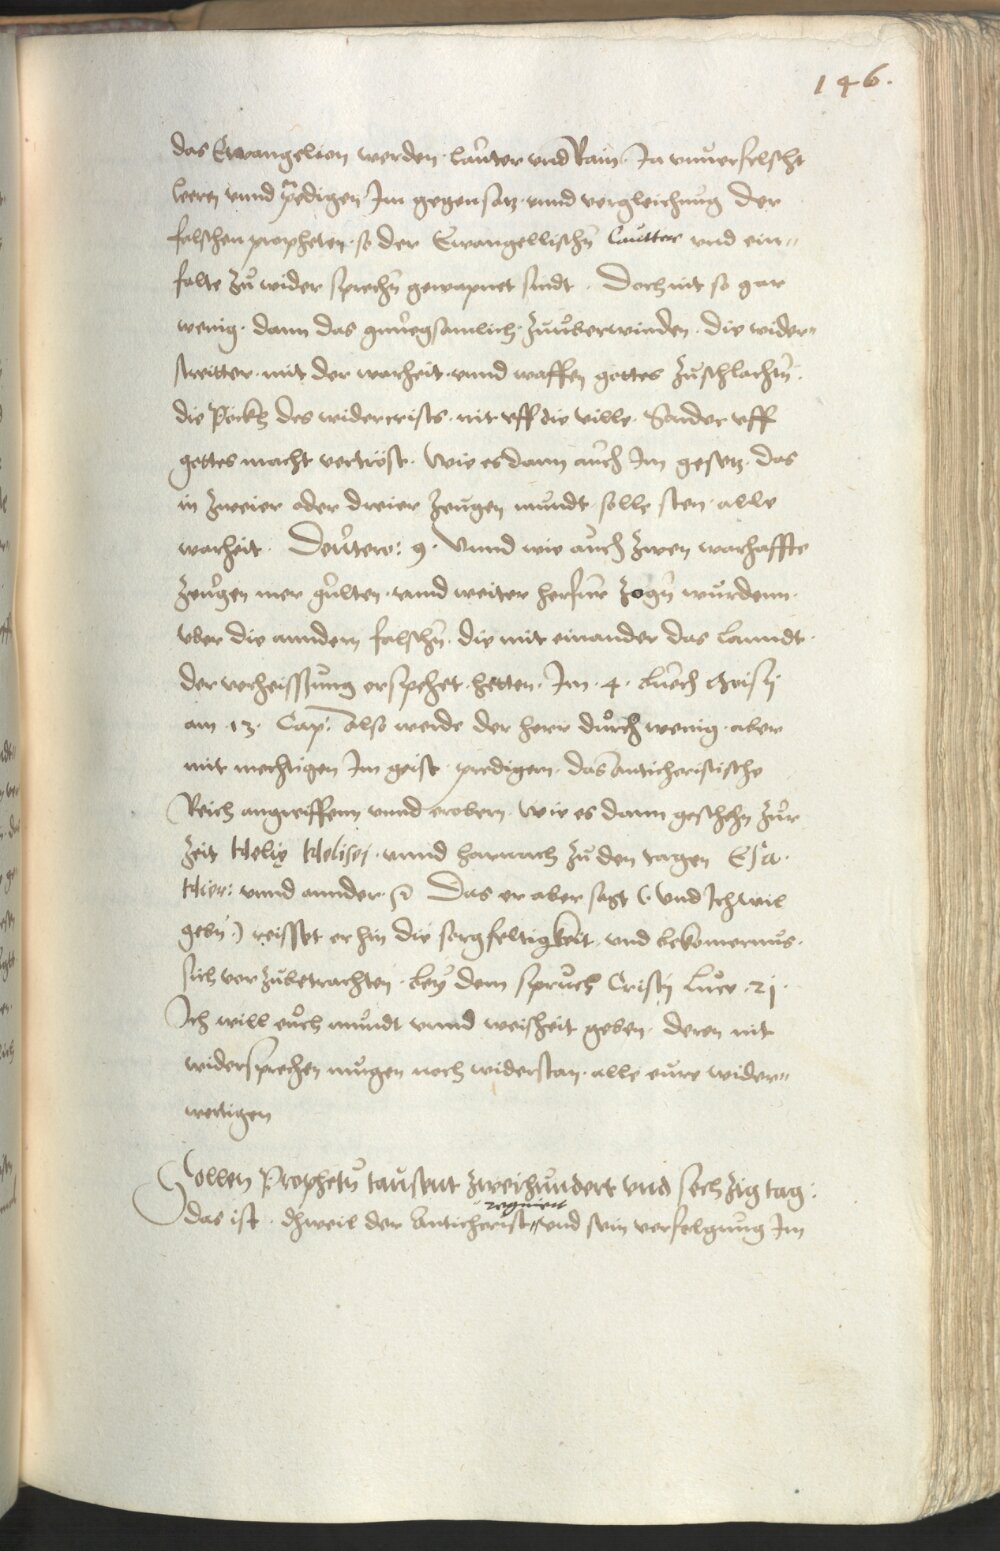 146.
das Ewangelion werden. lauter vnd Rain. Ja vnuerfelscht
leeren vnnd predigen Jm gegensatz. vnnd vergleichung der
falschen propheten. so der Ewangellischn̄ lautter vnd ein=
falte zů wider sprechn̄ gewapnet sindt. Doch nit so gar
wenig. dann das gnuegsamlich. zuůberwinden. die wider=
streitter. mit der warheit. vnnd waffen gottes zuschlachn̄.
die Böckh des widercrists. nit vff die ville. Sonder vff
gottes macht vertröst. Wie es dann auch Jm gesetz. das
in zweier oder dreier zeugen mundt. solle sten. alle
warheit. Deutero: 9. Vnnd wie auch zwen warhaffte
zeugen mer gulten. vnnd weiter herfur zogn̄ wurdenn.
vber die anndern falschn̄. die mit einander das lanndt.
der verheissung erspehet. hetten. Jm. 4. buech Moisy
am. 13. Cap: also werde der herr durch wenig. aber
mit mechtigen Jm geist. predigern. das Antichristische
Reich angreiffenn vnnd erobern. Wie es dann geschehn zur
zeit Helie Helisei. vnnd harnach zu den tagen Esa.
Hier: vnnd annder. Das er aber sagt (. Vnd Jch wil
gebn̄.) reisset er hin die sorgfeltigkeit. vnd bekomernus.
sich vor zubetrachten. bey dem spruch Cristj Luce. 21.
Jch will euch mundt vnnd weisheit geben. deren nit
widersprechen mugen noch widerstan. alle eure wider=
wertigen
Sollen Prophetn̄ tausent zweihundert vnd sechzig tag:
das ist. dhweil der Antichrist regniert vnd sein verfolgung Jm